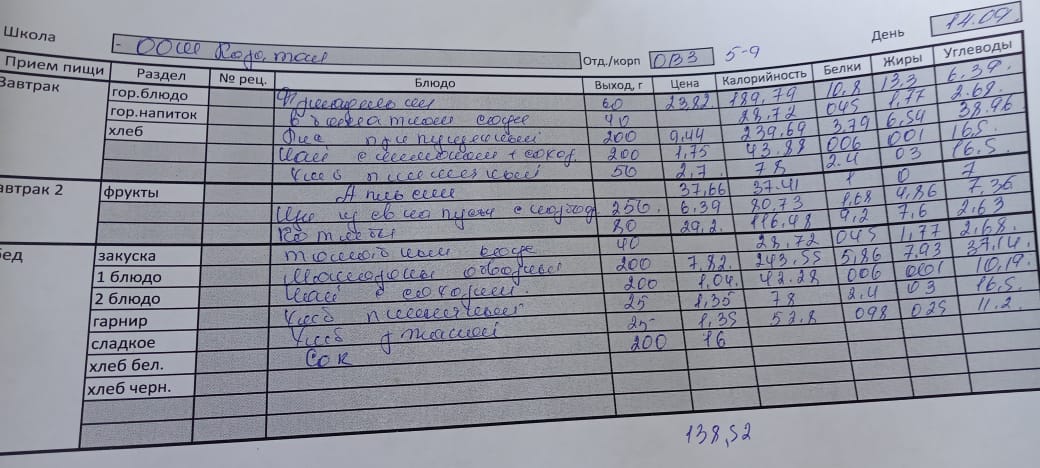 Школа - ООШ Отд./корп ОВЗ 5-9 День 14.09.
Прием пищи Раздел № рец. Блюдо Выход, г Цена Калорийность Белки Жиры Углеводы
Завтрак гор.блюдо Фрикадельки 60 23,82 189,79 10,8 13,3 6.39.
гор.напиток в томатном соусе 40 28,72 045 1,77 2.68.
хлеб 200 9,44 239,69 3,79 6,54 38.96
Чай с лимоном + сахар. 200 1,75 43.88 006 001 16,5.
Хлеб пшеничный 50 2,7. 78 2.4 03 16.5.
автрак 2 фрукты Апельсин 37,66 37.41 1 0 7
Щи из св капусты с 250. 6.39 80,73 1,68 4,86 7,36
Котлеты 80 29,2. 116,48 9,2 7,6 2.63
бед закуска томатный соус 40 28,72 045 1,77 2.68.
1 блюдо Макароны отварные 200 7,82. 243,55 5,86 7,93 37,14.
2 блюдо Чай с сахаром. 200 1,04. 42.28 006 001 10,19.
гарнир Хлеб пшеничный 25 1,35 78 2.4 03 16.5.
сладкое Хлеб ржаной 25 1,35 52,8 098 025 11.2.
хлеб бел. Сок 200 16
хлеб черн.
138,52